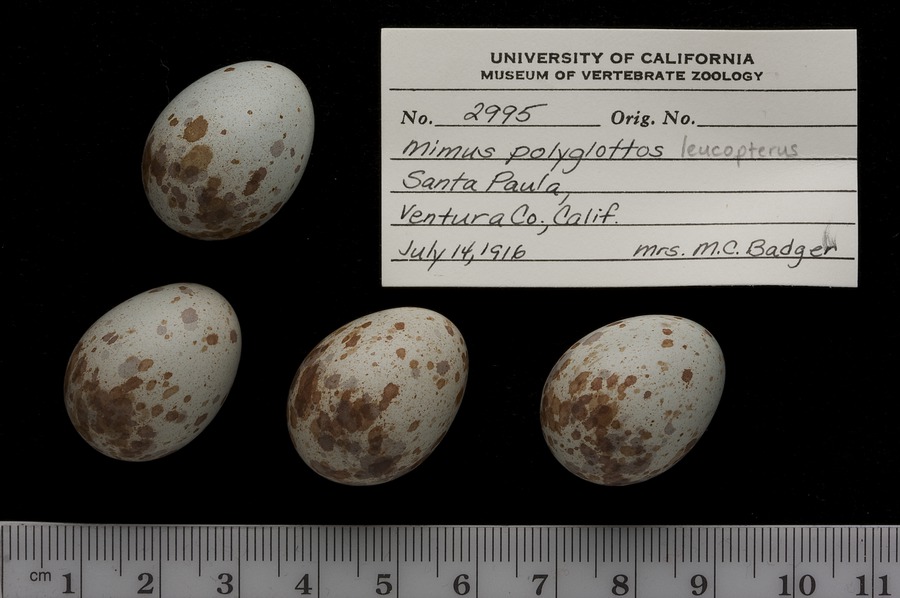 UNIVERSITY OF CALIFORNIA
MUSEUM OF VERTEBRATE ZOOLOGY
No. 2995 Orig. No.
Mimus polyglottos leucopterus
Santa Paula,
Ventura Co., Calif.
July 14, 1916 Mrs. M.C. Badger
cm 1 2 3 4 5 6 7 8 9 10 11